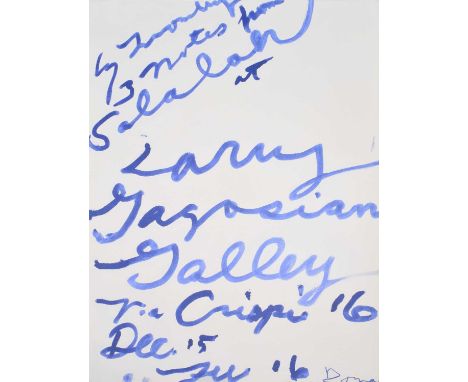 Cy Twombly
3 Notes from
Salalah
at
Larry
Gagosian
Galley
Via Crispi 16
Dec. 15
16